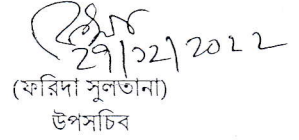 29/12/2022
(ফরিদা সুলতানা)
উপসচিব